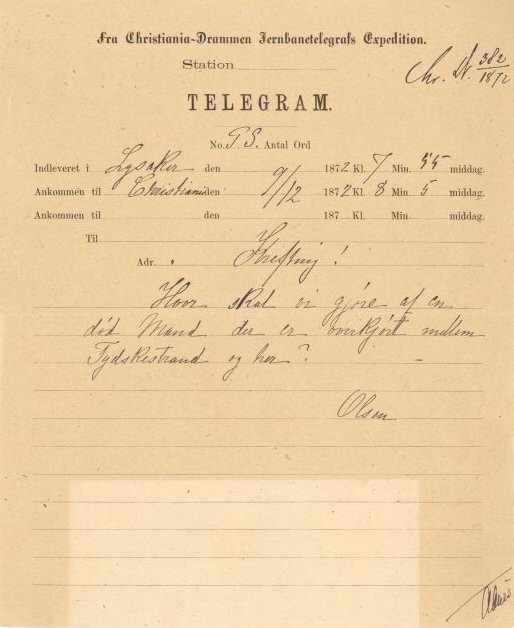 Fra Christiania-Drammen Jernbanetelegrafs Expedition.
Chr. Dr. 382/1872
Station
TELEGRAM.
No. T3, Antal Ord
Indleveret i Lysaker den 9/12 1872 Kl. 7 Min. 55 middag.
Ankommen til Christiania den 9/12 1872 Kl. 8 Min. 5 middag.
Ankommen til den 187 Kl. Min. middag.
Til
Adr. Krefting!
Hvor skal vi gjøre af en
død Mand der er overkjørt mellem
Tydskestrand og her?
Olsen